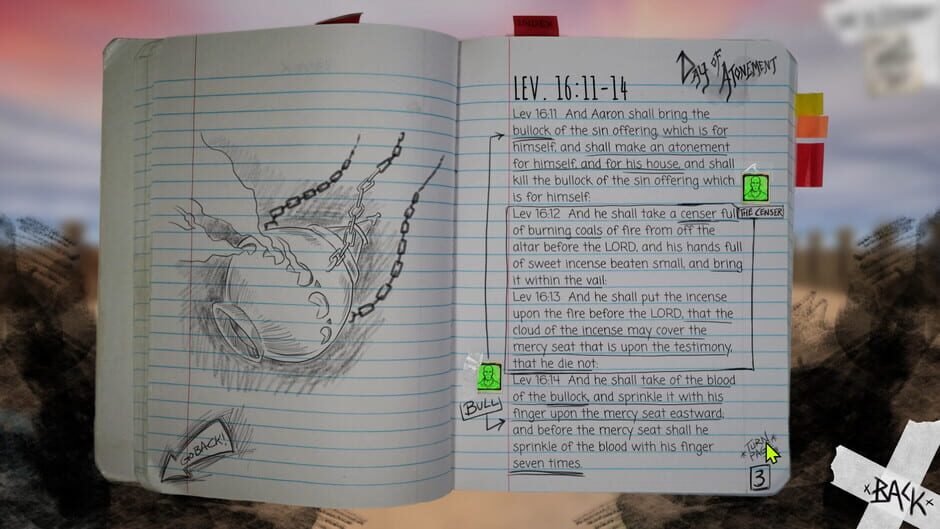 INDEX
DAY OF ATONEMENT
LEV. 16:11-14
Lev 16:11 And Aaron shall bring the
bullock of the sin offering, which is for
himself, and shall make an atonement
for himself, and for his house, and shall
kill the bullock of the sin offering which
is for himself:
Lev 16:12 And he shall take a censer full
of burning coals of fire from off the
altar before the LORD, and his hands full
of sweet incense beaten small, and bring
it within the vail:
Lev 16:13 And he shall put the incense
upon the fire before the LORD, that the
cloud of the incense may cover the
mercy seat that is upon the testimony,
that he die not:
Lev 16:14 And he shall take of the blood
of the bullock, and sprinkle it with his
finger upon the mercy seat eastward;
and before the mercy seat shall he
sprinkle of the blood with his finger
seven times.
THE CENSER
BULL
GO BACK!
*TURN
PAGE*
3
xBACKx